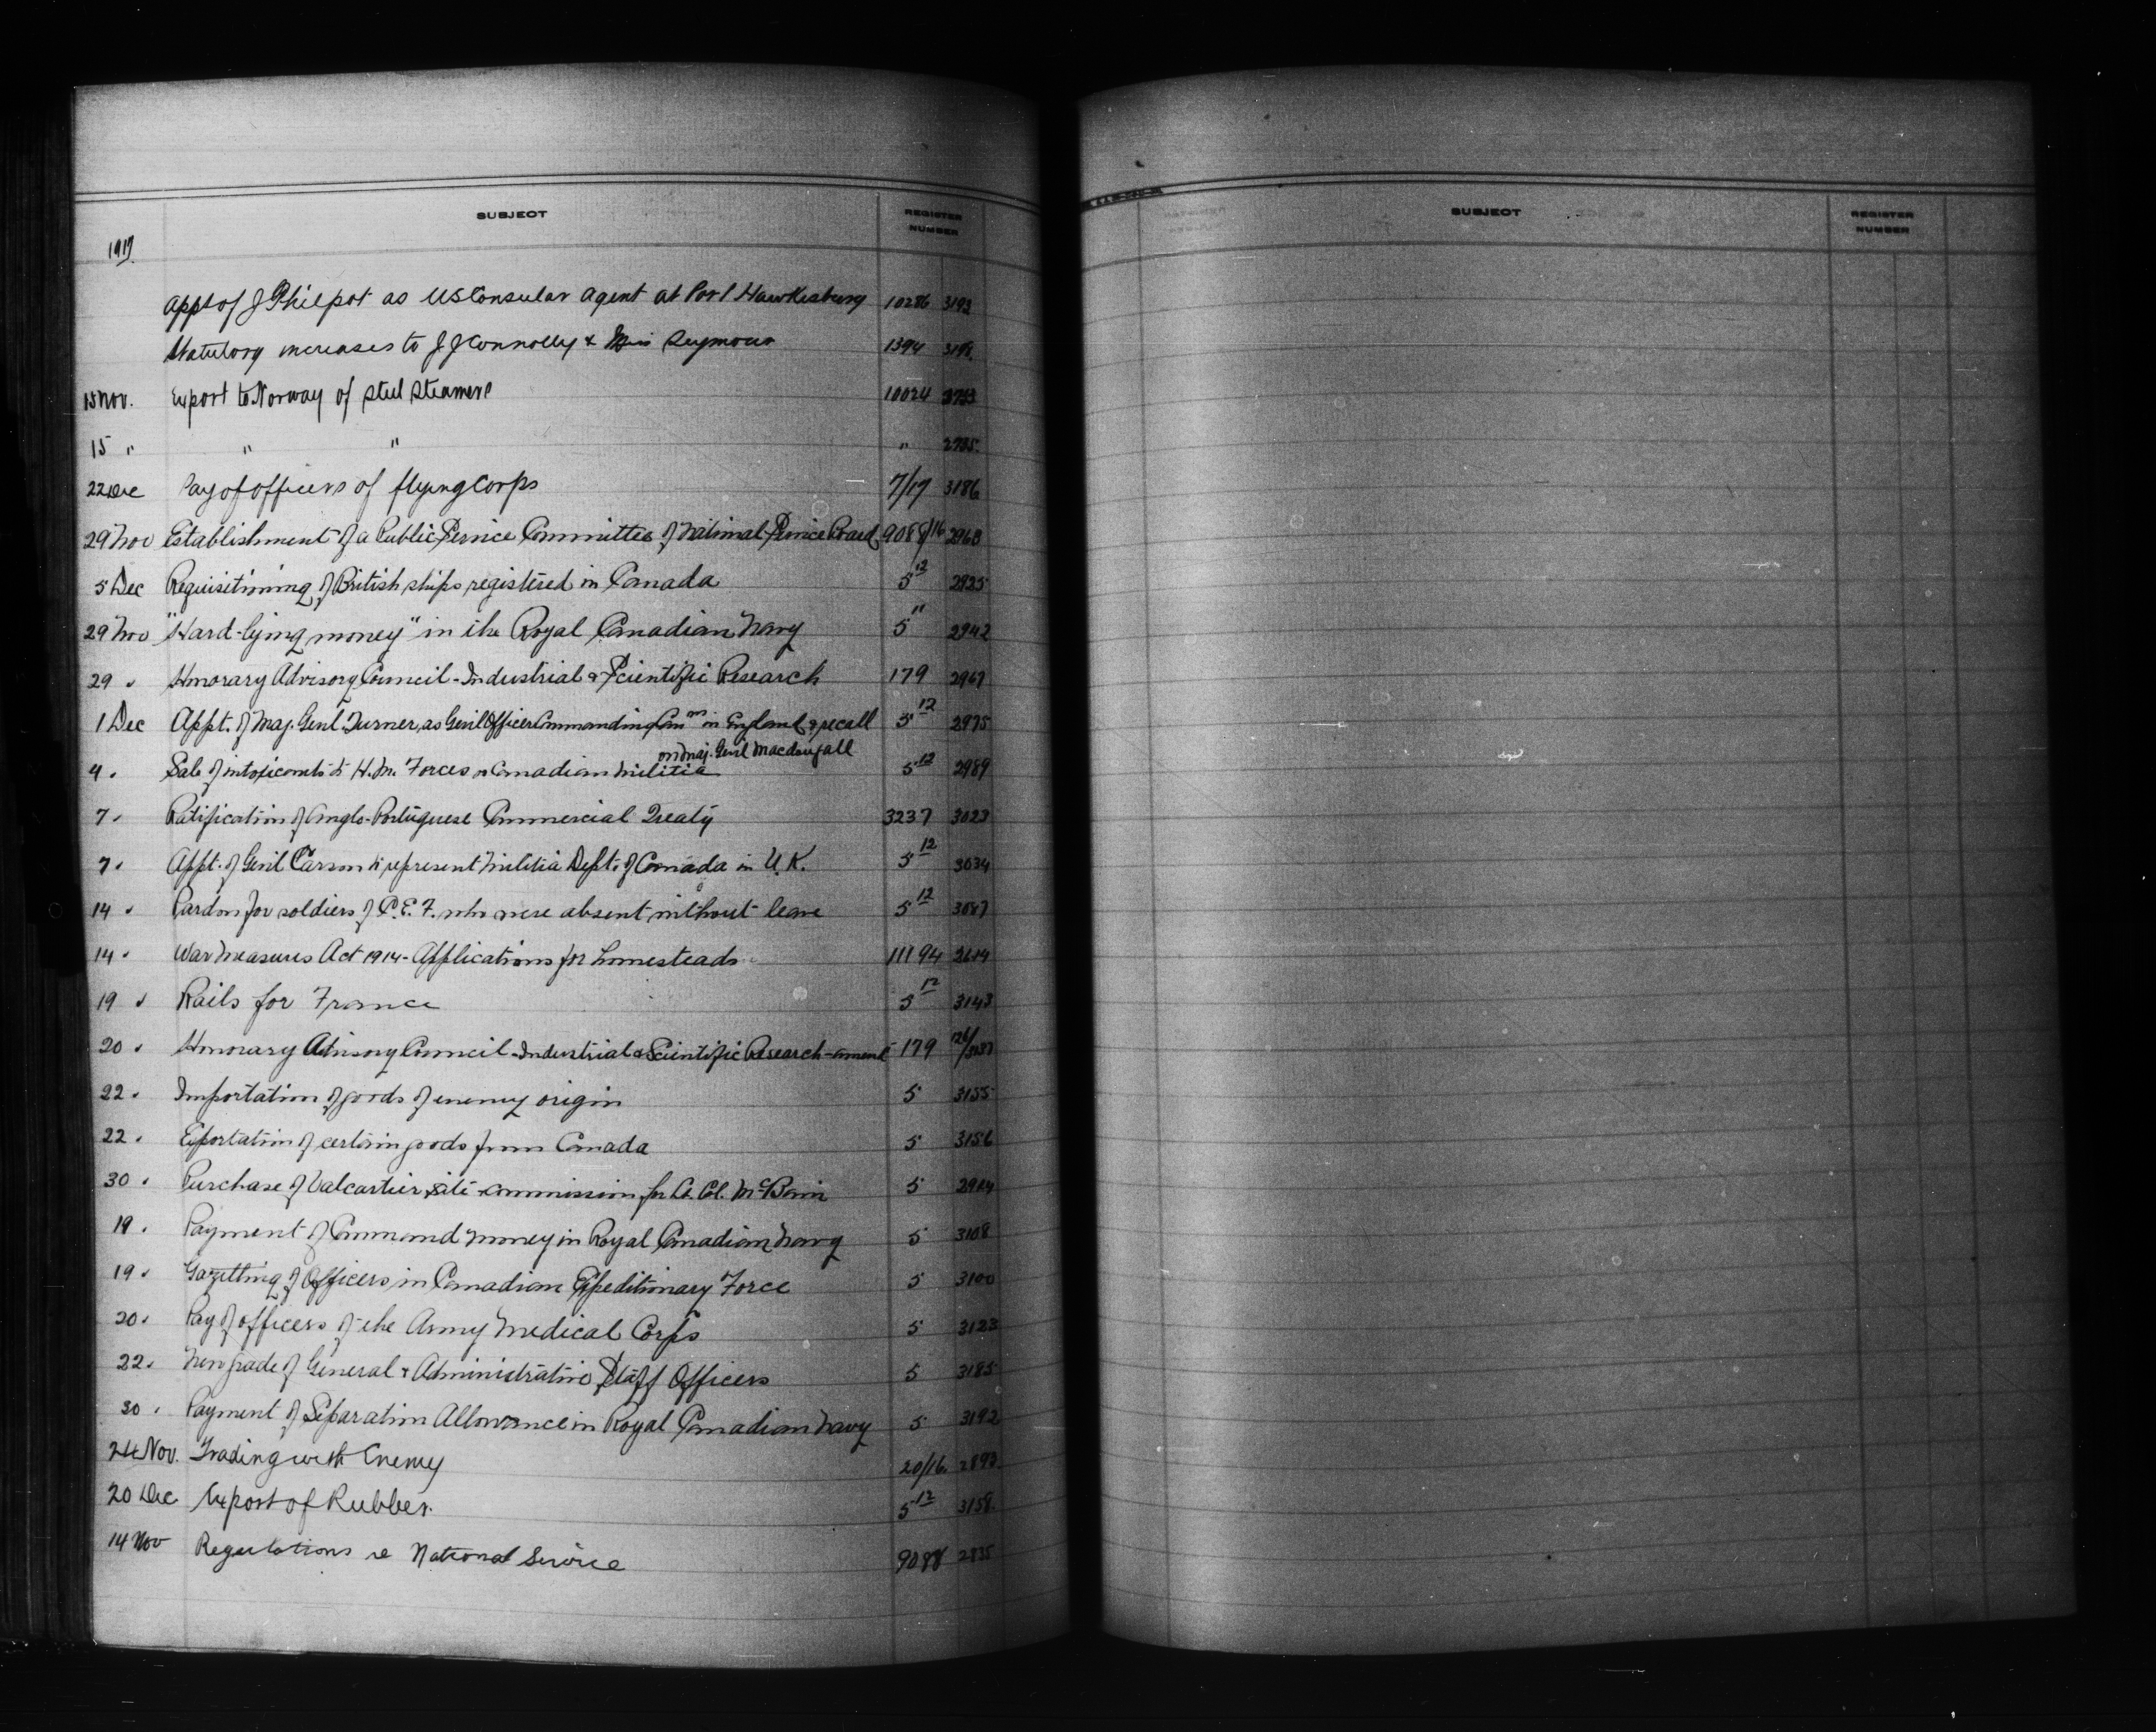 SUBJECT REGISTER NUMBER
1917
Appt of J Philpot as US Consular Agent at Port Hawkesbury 10286 3193
Statutory increases to J J Connolly & Miss Seymour 1394 3198
15 Nov. Export to Norway of steel steamers 10024
15 " " " " 2735
22 Dec Pay of officers of flying Corps 7/17 3186
29 Nov Establishment of a Public Service Committee of National Service Board 9088/16 2968
5 Dec Requisitioning of British ships registered in Canada 5 12 2925
29 Nov "Hard-lying money" in the Royal Canadian Navy 5 " 2942
29 " Honorary Advisory Council - Industrial & Scientific Research 179 2967
1 Dec Appt. of Maj. Genl. Turner, as Genl Officer Commanding Can ns in England & recall 5 12 2975
on Maj. Genl Macdougall
4 " Sale of intoxicants to H.M. Forces or Canadian Militia 5 12 2989
7 " Ratification of Anglo-Portuguese Commercial Treaty 3237 3023
7 " Appt. of Genl Carson to represent Militia Dept. of Canada in U.K. 5 12 3034
14 " Pardon for soldiers of C.E.F. who were absent without leave 5 12 3087
14 " War Measures Act 1914 - Applications for homesteads 11194 2614
19 " Rails for France 5 12 3143
20 " Honorary Advisory Council - Industrial & Scientific Research - amend 179
22 " Importation of goods of enemy origin 5 3155
22 " Exportation of certain goods from Canada 5 3156
30 " Purchase of Valcartier site - commission for Lt. Col. McBain 5 2914
19 " Payment of Command money in Royal Canadian Navy 5 3108
19 " Gazetting of Officers in Canadian Expeditionary Force 5 3100
20 " Pay of officers of the Army Medical Corps 5 3123
22 " New grade of General & Administrative Staff Officers 5 3185
30 " Payment of Separation Allowance in Royal Canadian Navy 5 3192
24 Nov. Trading with Enemy 20/16 2893
20 Dec Export of Rubber. 5 12 3158
14 Nov Regulations re National Service 9088 2835
SUBJECT REGISTER NUMBER